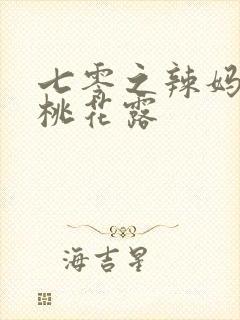 七零之辣妈
桃花露
海吉星